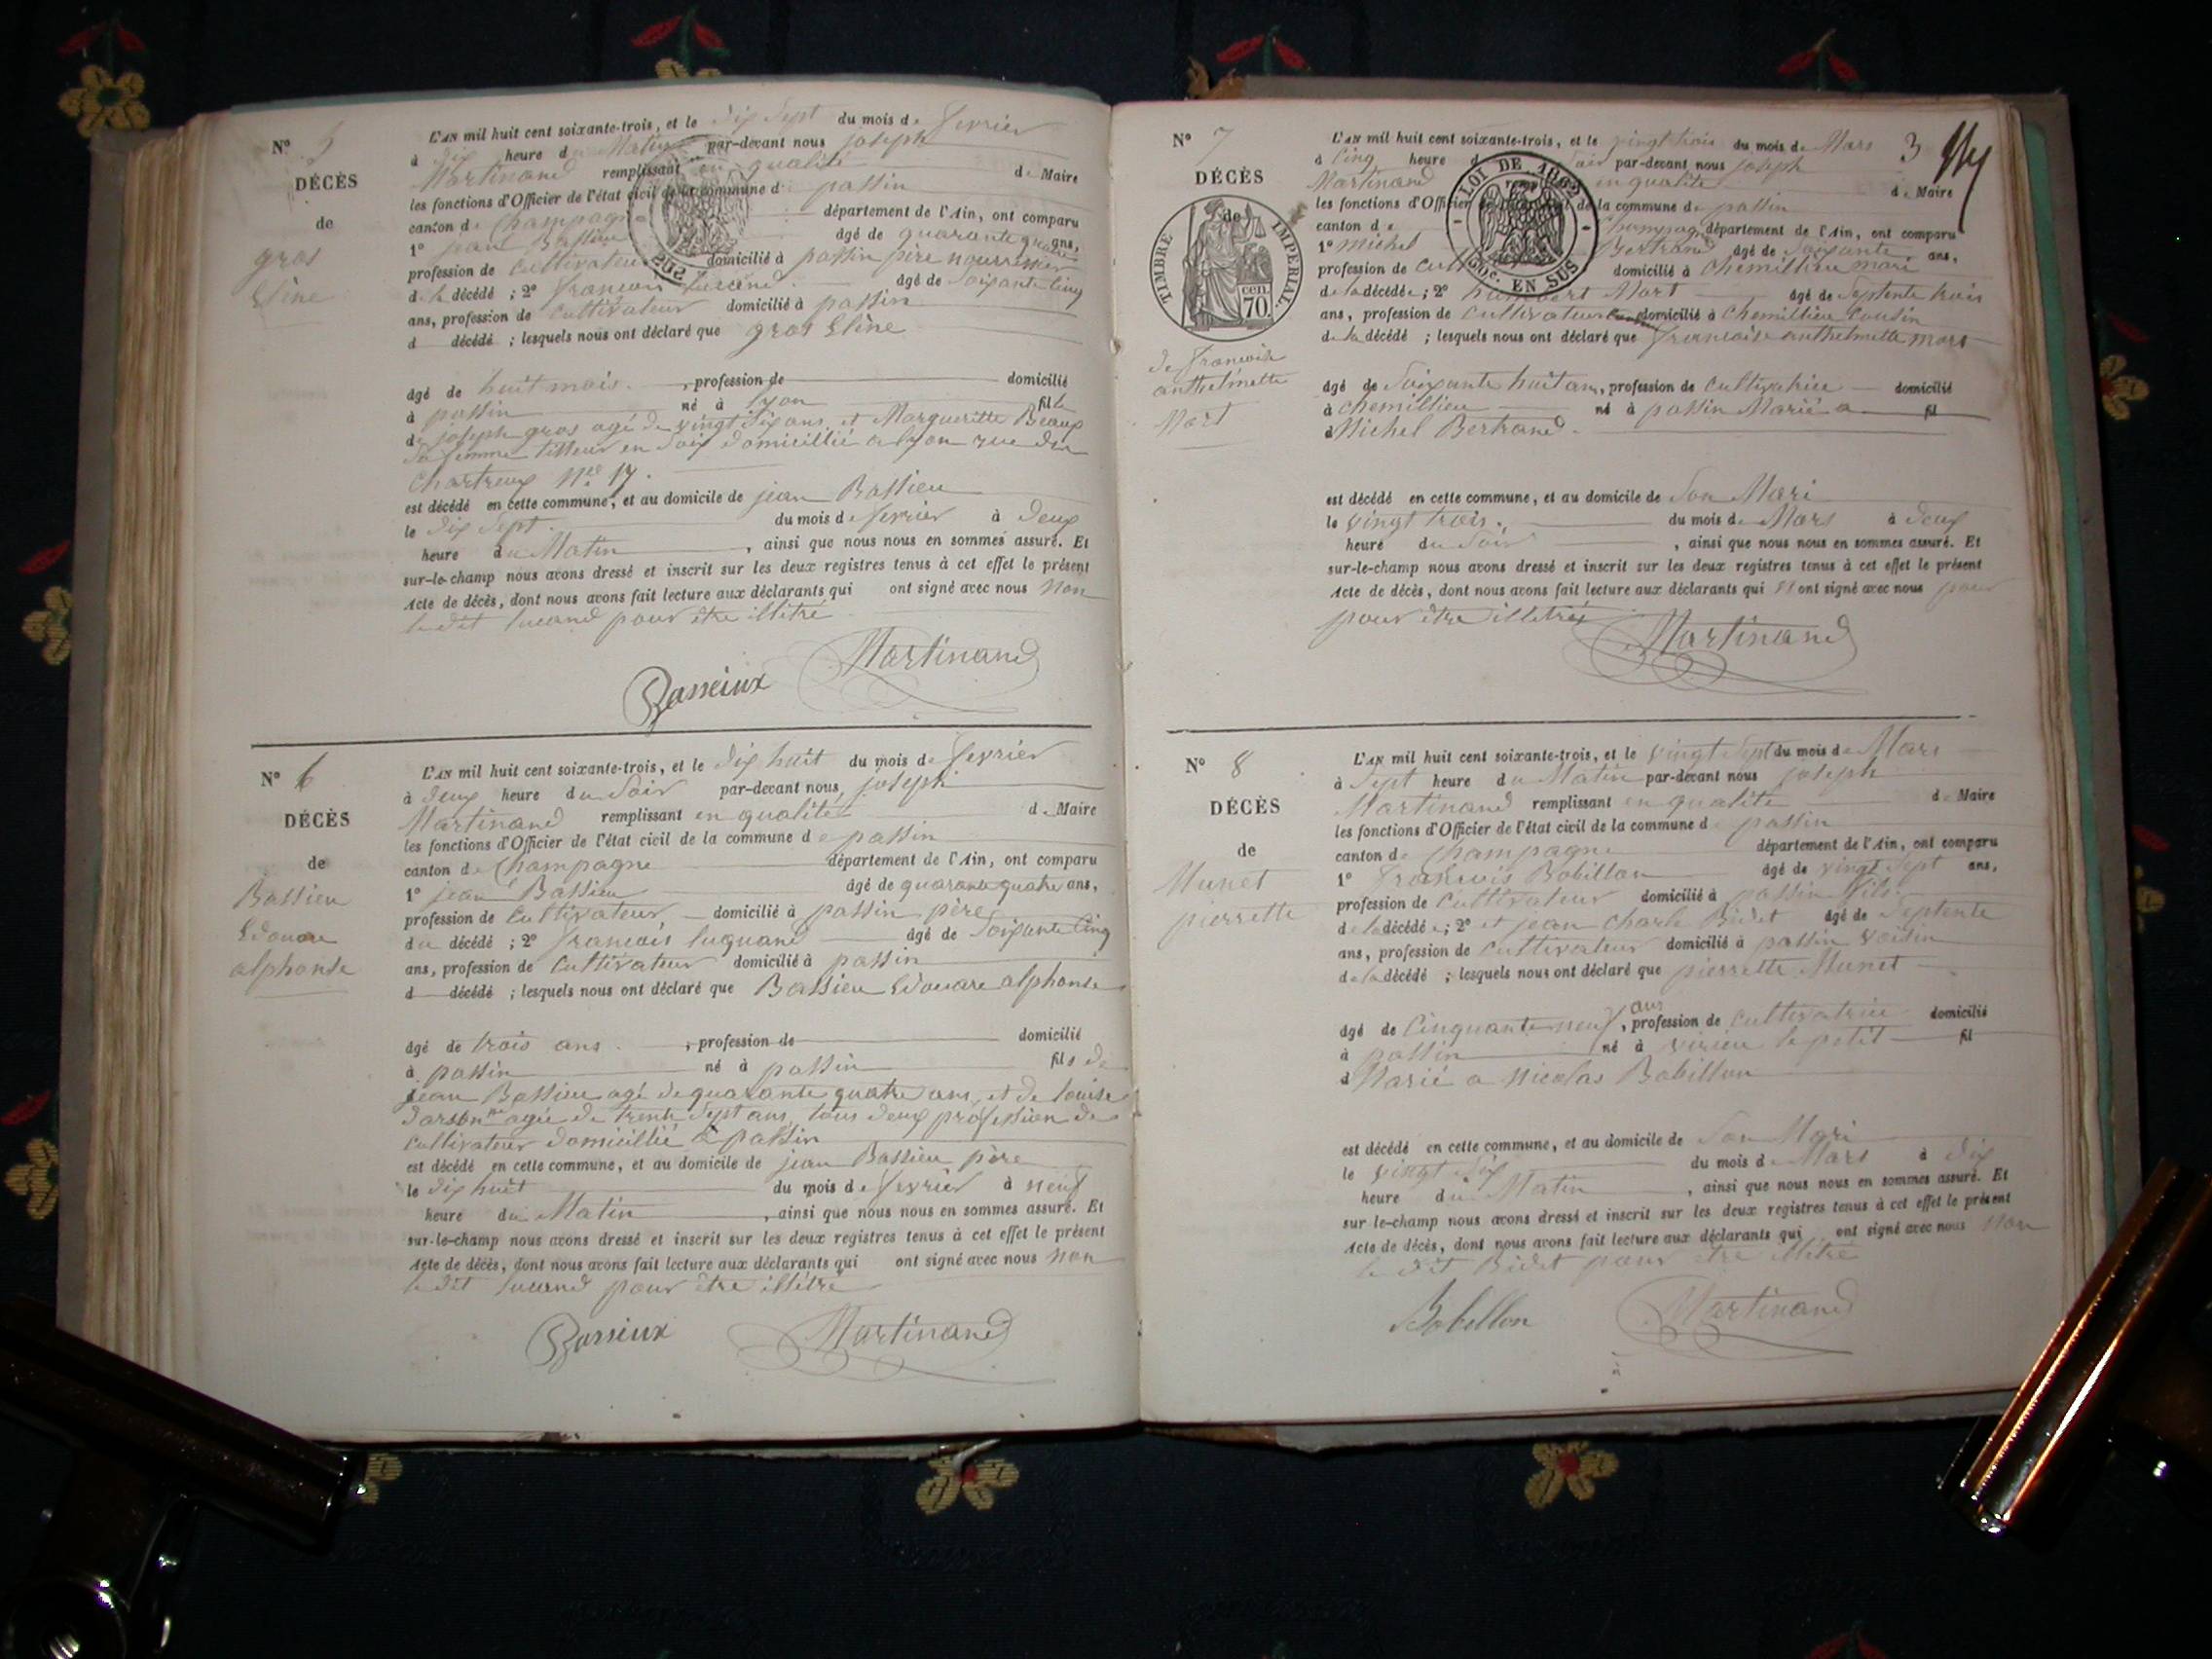 N° 5
DÉCÈS
de
gros
Eline
L'AN mil huit cent soixante-trois, et le dix Sept du mois de fevrier
à dix heure du Matin par-devant nous joseph
Martinand remplissant en qualité de Maire
les fonctions d'Officier de l'état civil de la commune d passin
canton de Champagne département de l'Ain, ont comparu
1° Bassieu âgé de quarante quatre ans,
profession de Cultivateur domicilié à passin père nourrissier
de la décédé ; 2° francois lucand âgé de Soixante cinq
ans, profession de Cultivateur domicilié à passin
d décédé ; lesquels nous ont déclaré que gros Eline
âgé de huit mois. , profession de domicilié
à passin né à lyon fille
de joseph gros agé de vingt Six ans et Margueritte Beaux
Sa femme tisseur en Soix domicillié a lyon rue du
Chartreux N° 17.
est décédé en cette commune, et au domicile de jean Bassieu
le dix Sept. du mois de fevrier à deux
heure du Matin , ainsi que nous nous en sommes assuré. Et
sur-le-champ nous avons dressé et inscrit sur les deux registres tenus à cet effet le présent
Acte de décès, dont nous avons fait lecture aux déclarants qui ont signé avec nous Non
le dit lucand pour être illitré
Bassieux Martinand
N° 6
DÉCÈS
de
Bassieu
Edouare
alphonse
L'AN mil huit cent soixante-trois, et le dix huit du mois de fevrier
à deux heure du Soir par-devant nous, joseph
Martinand remplissant en qualité de Maire
les fonctions d'Officier de l'état civil de la commune de passin
canton de Champagne département de l'Ain, ont comparu
1° jean Bassieu âgé de quarante quatre ans,
profession de Cultivateur domicilié à passin père
du décédé ; 2° francois luquand âgé de Soixante Cinq
ans, profession de Cultivateur domicilié à passin
d décédé ; lesquels nous ont déclaré que Bassieu Edouare alphonse
âgé de trois ans. , profession de domicilié
à passin né à passin fils de
jean Bassieu agé de quarante quatre ans, et de louise
agée de trente Sept ans, tous deux profession de
Cultivateur domicillié a passin
est décédé en cette commune, et au domicile de jean Bassieu père
le dix huit du mois de fevrier à neuf
heure du Matin , ainsi que nous nous en sommes assuré. Et
sur-le-champ nous avons dressé et inscrit sur les deux registres tenus à cet effet le présent
Acte de décès, dont nous avons fait lecture aux déclarants qui ont signé avec nous Non
le dit lucand pour être illétré
Bassieux Martinand
3
N° 7
DÉCÈS
de
TIMBRE IMPÉRIAL
70 cen
de francoise
anthelmette
Mort
LOI DE 1862
EN SUS
L'AN mil huit cent soixante-trois, et le vingt trois du mois de Mars
à Cinq heure d Soir par-devant nous joseph
Martinand en qualité de Maire
les fonctions d'Officier de la commune de passin
canton de Champagne département de l'Ain, ont comparu
1° Michel Bertrand âgé de Soixante ans,
profession de domicilié à Chemillieu mari
de la décédée ; 2° Mort âgé de Septente trois
ans, profession de Cultivateur domicilié à Chemillieu Cousin
de la décédé ; lesquels nous ont déclaré que francoise anthelmette mort
âgé de Soixante huit ans, profession de Cultivatrice domicilié
à Chemillieu né à passin Marié a fil
d Michel Bertrand.
est décédé en cette commune, et au domicile de Son Mari
le vingt trois. du mois de Mars à deux
heure du Soir , ainsi que nous nous en sommes assuré. Et
sur-le-champ nous avons dressé et inscrit sur les deux registres tenus à cet effet le présent
Acte de décès, dont nous avons fait lecture aux déclarants qui ont signé avec nous pour
pour être illetrés
Martinand
N° 8
DÉCÈS
de
Munet
pierrette
L'AN mil huit cent soixante-trois, et le vingt Sept du mois de Mars
à Sept heure du Matin par-devant nous joseph
Martinand remplissant en qualité de Maire
les fonctions d'Officier de l'état civil de la commune d passin
canton de Champagne département de l'Ain, ont comparu
1° francois Bobillon âgé de vingt Sept ans,
profession de Cultivateur domicilié à passin fils
de la décédée ; 2° et jean Charle Bidet âgé de Septente
ans, profession de Cultivateur domicilié à passin voisin
de la décédé ; lesquels nous ont déclaré que pierrette Munet
âgé de Cinquante neuf ans, profession de Cultivatrice domicilié
à passin né à virieu le petit fil
d Marié a Nicolas Bobillon
est décédé en cette commune, et au domicile de Son Mari
le vingt Six du mois de Mars à dix
heure du Matin , ainsi que nous nous en sommes assuré. Et
sur le-champ nous avons dressé et inscrit sur les deux registres tenus à cet effet le présent
Acte de décès, dont nous avons fait lecture aux déclarants qui ont signé avec nous Non
le dit Bidet pour être illitré
Bobillon Martinand